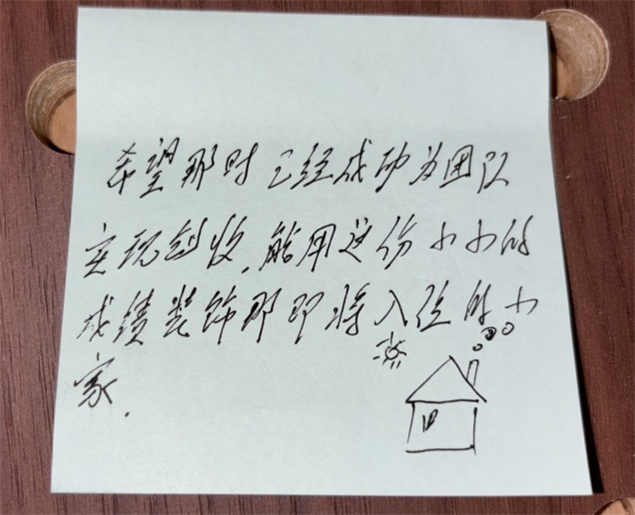 希望那时已经成功为团队
实现创收，能用这份小小的
成绩装饰那即将入住的小
家.